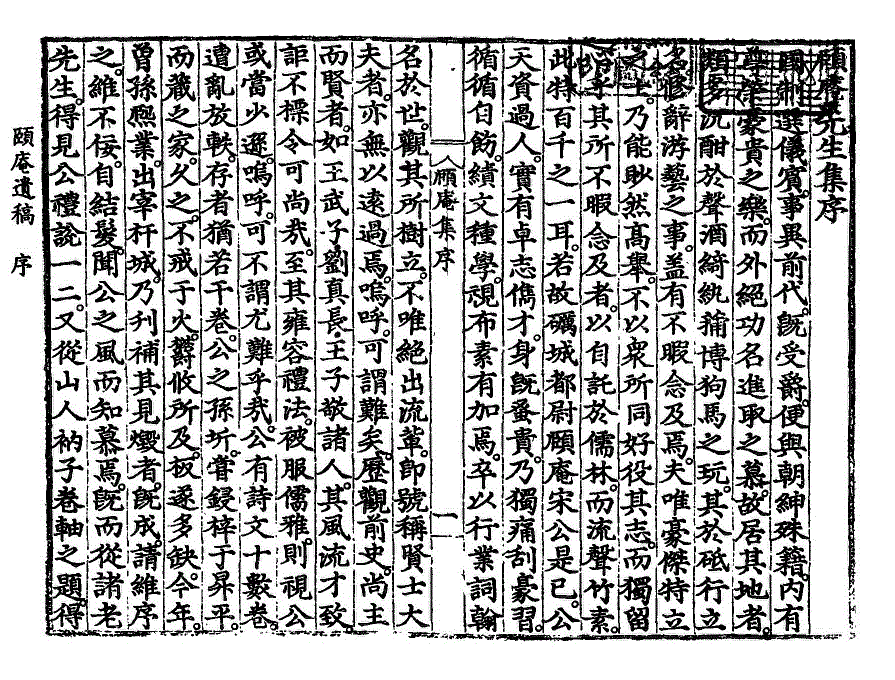 頤庵先生集序
國制選儀賓。事異前代。旣受爵。便與朝紳殊籍。內有
尊榮豪貴之樂。而外絕功名進取之慕。故居其地者。
類多沉酣於聲酒綺紈蒱博狗馬之玩。其於砥行立
名修辭游藝之事。盖有不暇念及焉。夫唯豪傑特立
之士。乃能眇然高舉。不以衆所同好役其志。而獨留
乎其所不暇念及者。以自託於儒林。而流聲竹素。
此特百千之一耳。若故礪城都尉頤庵宋公是已。公
天資過人。實有卓志儁才。身旣蚤貴。乃獨痛刮豪習。
循循自飭。績文種學。視布素有加焉。卒以行業詞翰
頤庵集序 一
名於世。觀其所樹立。不唯絕出流輩。卽號稱賢士大
夫者。亦無以遠過焉。嗚呼。可謂難矣。歷觀前史。尚主
而賢者。如王武子劉眞長王子敬諸人。其風流才致。
詎不標令可尙哉。至其雍容禮法。被服儒雅。則視公
或當少遜。嗚呼。可不謂尤難乎哉。公有詩文十數卷。
遭亂放軼。存者猶若干卷。公之孫圻。嘗鋟梓于昇平
而藏之家。久之。不戒于火。欝攸所及。板遂多缺。今年。
曾孫熙業。出宰杆城。乃刋補其見燬者。旣成。請維序
之。維不佞。自結髮。聞公之風而知慕焉。旣而從諸老
先生。得見公禮說一二。又從山人衲子卷軸之題。得
頤庵遺稿 序